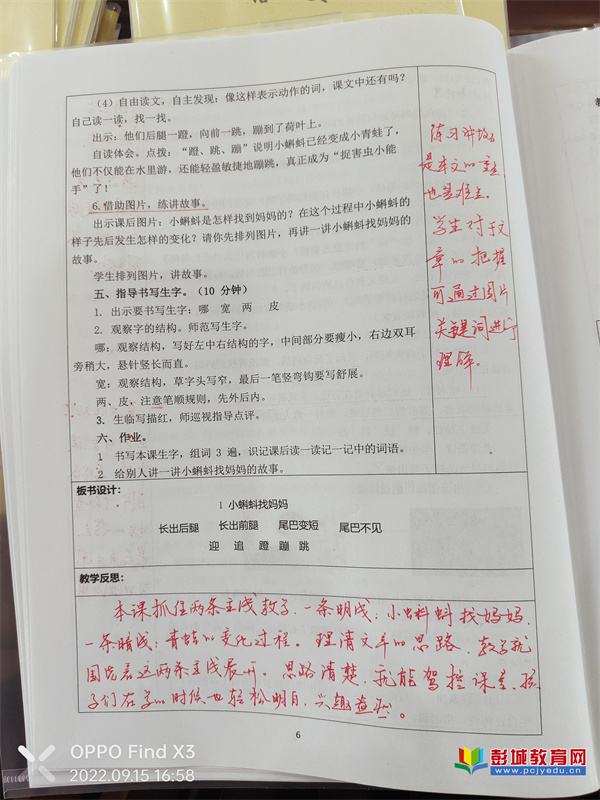 （4）自由读文，自主发现：像这样表示动作的词，课文中还有吗？
自己读一读，找一找。
出示：他们后腿一蹬，向前一跳，蹦到了荷叶上。
自读体会。点拨：“蹬、跳、蹦”说明小蝌蚪已经变成小青蛙了，
他们不仅能在水里游，还能轻盈敏捷地蹦跳，真正成为“捉害虫小能
手”了！
6.借助图片，练讲故事。
出示课后图片：小蝌蚪是怎样找到妈妈的？在这个过程中小蝌蚪的
样子先后发生怎样的变化？请你先排列图片，再讲一讲小蝌蚪找妈妈的
故事。
学生排列图片，讲故事。
五、指导书写生字。（10 分钟）
1. 出示要书写生字：哪 宽 两 皮
2. 观察字的结构。师范写生字。
哪：观察结构，写好左中右结构的字，中间部分要瘦小，右边双耳
旁稍大，悬针竖长而直。
宽：观察结构，草字头写窄，最后一笔竖弯钩要写舒展。
两、皮，注意笔顺规则，先外后内。
3. 生临写描红，师巡视指导点评。
六、作业。
1 书写本课生字，组词 3 遍，识记课后读一读记一记中的词语。
2 给别人讲一讲小蝌蚪找妈妈的故事。
练习讲故事
是本文的重点
也是难点。
学生对于文
章的把握
可通过图片
关键词进行
理解。
板书设计：
1 小蝌蚪找妈妈
长出后腿 长出前腿 尾巴变短 尾巴不见
迎 追 蹬 蹦 跳
教学反思：
本课抓住两条主线教学，一条明线：小蝌蚪找妈妈，
一条暗线：青蛙的变化过程。理清文章的思路，教学就
围绕着这两条主线展开。思路清楚，就能驾控课堂，孩
子们在学的时候也轻松明白，兴趣盎然。
6
OPPO Find X3
2022.09.15 16:58
彭城教育网
www.pcjyedu.cn